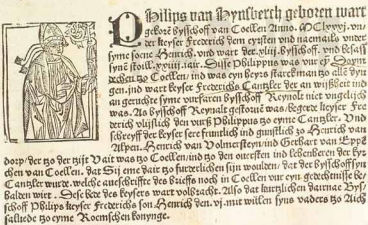 Philips van Hynsberch geboren wart
gekorē bysschoff van Coellen Anno. M C lxvij. vn̄
der keyser Frederich dem eyrsten vnd niemails vnder
syme soene Henrich. vnd wart der. xliij. bysschoff. vnd besass
syne stoill. xxiij. iair. Dise Philippus was vur eyn Doym
dechen tzo Coellen/ ind was eyn beyrs starckman tzo allē dyn
gen. ind wart keyser Frederichs Cantzler der an wijßheit ind
an geruchte syme vurfaren bysschoff Reynolt niet vngelijch
was. Als bysschoff Reynalt gestorué was. begerde keyser Fre
derich vlijslich den vurß Philippus tzo eyme Cantzler. Vnd
schreyff der keyser sere fruntlich ind gunstlich zo Henrich van
Alpen. Henrich van Volmersteyn/ ind Gerhart van Epp
dorp/ der tzo der tzijt Vait was tzo Coellen/ ind tzo den ouersten ind lehenheren der kyr
chen van Coellen. dat Sij eme dair tzo furderlichen sijn woulden/ dat der bysschoff syn
Cantzler wurde. welche anschriffte des brieffs noch in Coellen vur eyn gedechtnisse be
halden wirt. Dese bede des keysers wart volbracht. Also dat kurtzlichen dairnae Bys-
schoff Philips keyser Frederichs son Henrich den. vj. mit willen syns vaders tzo Aich
salfede tzo eyme Roemschen konynge.